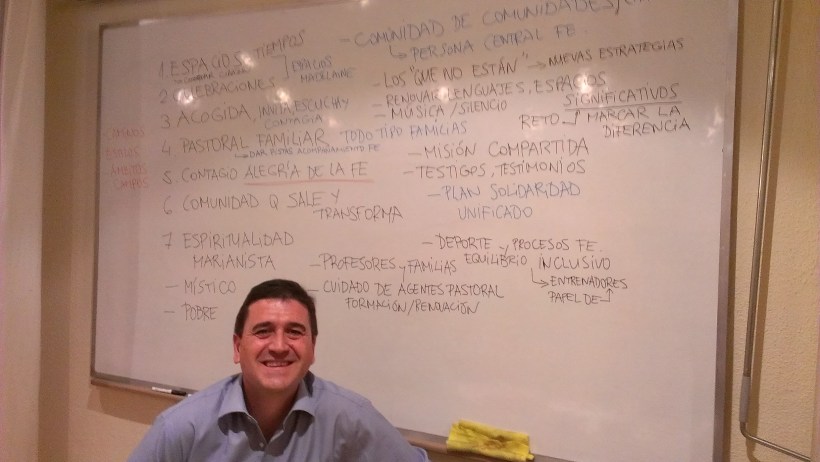 1. ESPACIOS Y TIEMPOS
2 CELEBRACIONES
] ESPACIOS MADELAINE
3 ACOGIDA, INVITA, ESCUCHA Y
CONTAGIA
4 PASTORAL FAMILIAR TODO TIPO FAMILIAS
↳ DAR PISTAS ACOMPAÑAMIENTO FE
5. CONTAGIO ALEGRÍA DE LA FE
6 COMUNIDAD Q SALE Y
TRANSFORMA
7 ESPIRITUALIDAD
MARIANISTA
- MÍSTICO
- POBRE
- COMUNIDAD DE COMUNIDADES/
↳ PERSONA CENTRAL FE.
- LOS "QUE NO ESTÁN" → NUEVAS ESTRATEGIAS
- RENOVAR LENGUAJES, ESPACIOS
- MÚSICA / SILENCIO
SIGNIFICATIVOS
RETO → MARCAR LA
DIFERENCIA
- MISIÓN COMPARTIDA
- TESTIGOS, TESTIMONIOS
- PLAN SOLIDARIDAD
UNIFICADO
- DEPORTE Y PROCESOS FE.
EQUILIBRIO INCLUSIVO
↳ ENTRENADORES
PAPEL DE
- PROFESORES Y FAMILIAS
- CUIDADO DE AGENTES PASTORAL
FORMACIÓN/RENOVACIÓN